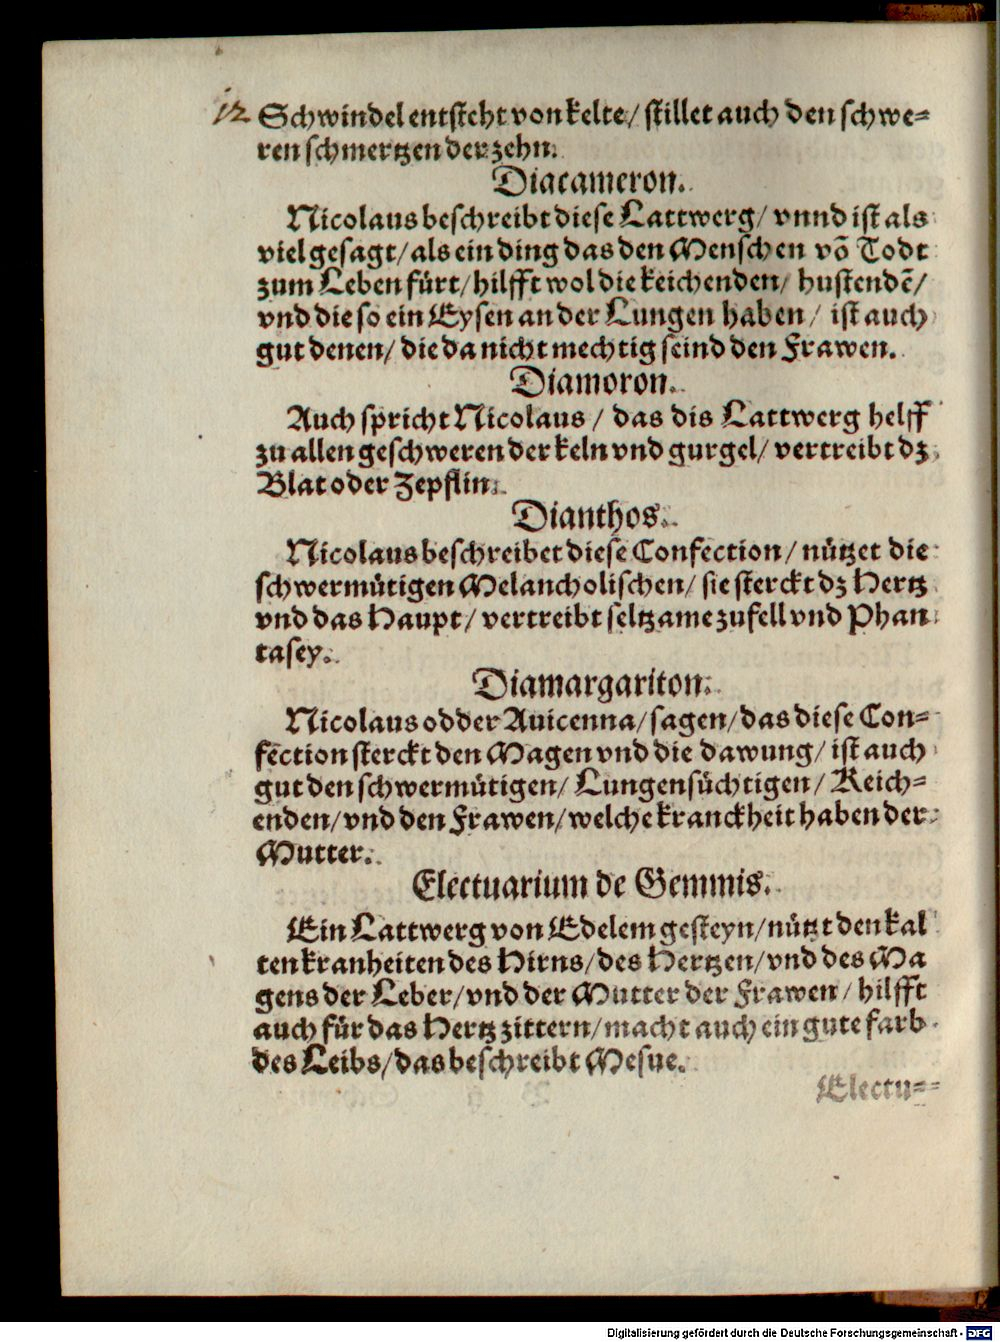 12 Schwindel entsteht von kelte/ stillet auch den schwe=
ren schmertzen der zehn.
Diacameron.
Nicolaus beschreibt diese Lattwerg/ vnnd ist als
viel gesagt/ als ein ding das den Menschen võ Todt
zum Leben fürt/ hilfft wol die keichenden/ hustendẽ/
vnd die so ein Eysen an der Lungen haben/ ist auch
gut denen/ die da nicht mechtig seind den Frawen.
Diamoron.
Auch spricht Nicolaus/ das dis Lattwerg helff
zu allen geschweren der keln vnd gurgel/ vertreibt dz
Blat oder Zepflin.
Dianthos.
Nicolaus beschreibet diese Confection/ nützet die
schwermütigen Melancholischen/ sie sterckt dz Hertz
vnd das Haupt/ vertreibt seltzame zufell vnd Phan
tasey.
Diamargariton.
Nicolaus odder Auicenna/ sagen/ das diese Con=
fection sterckt den Magen vnd die dawung/ ist auch
gut den schwermütigen/ Lungensüchtigen/ Keich=
enden/ vnd den Frawen/ welche kranckheit haben der
Mutter.
Electuarium de Gemmis.
Ein Lattwerg von Edelem gesteyn/ nützt den kal
ten kranheiten des Hirns/ des Hertzen/ vnd des Ma
gens der Leber/ vnd der Mutter der Frawen/ hilfft
auch für das Hertz zittern/ macht auch ein gute farb
des Leibs/ das beschreibt Mesue.
Electu=
Digitalisierung gefördert durch die Deutsche Forschungsgemeinschaft - DFG